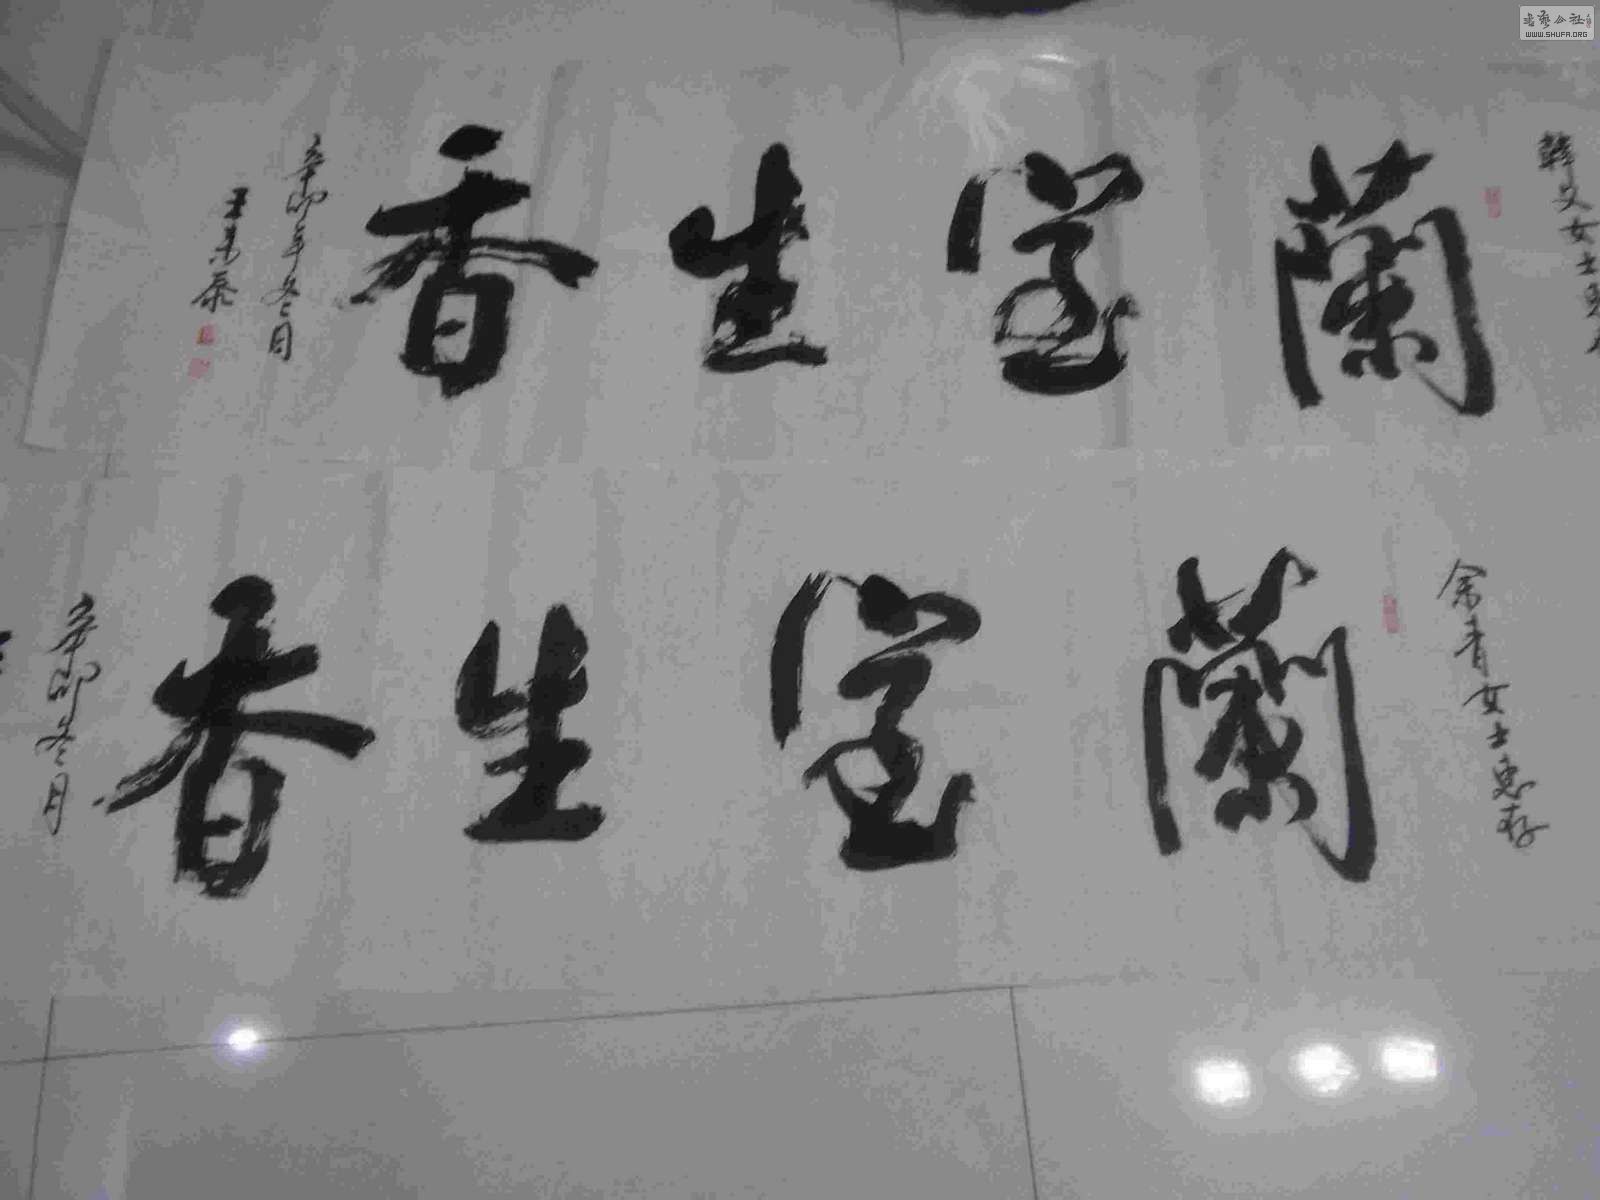 書藝公社
WWW.SHUFA.ORG
韓文女士惠存
蘭室生香
辛卯年冬月
余青女士惠存
蘭室生香
辛卯冬月